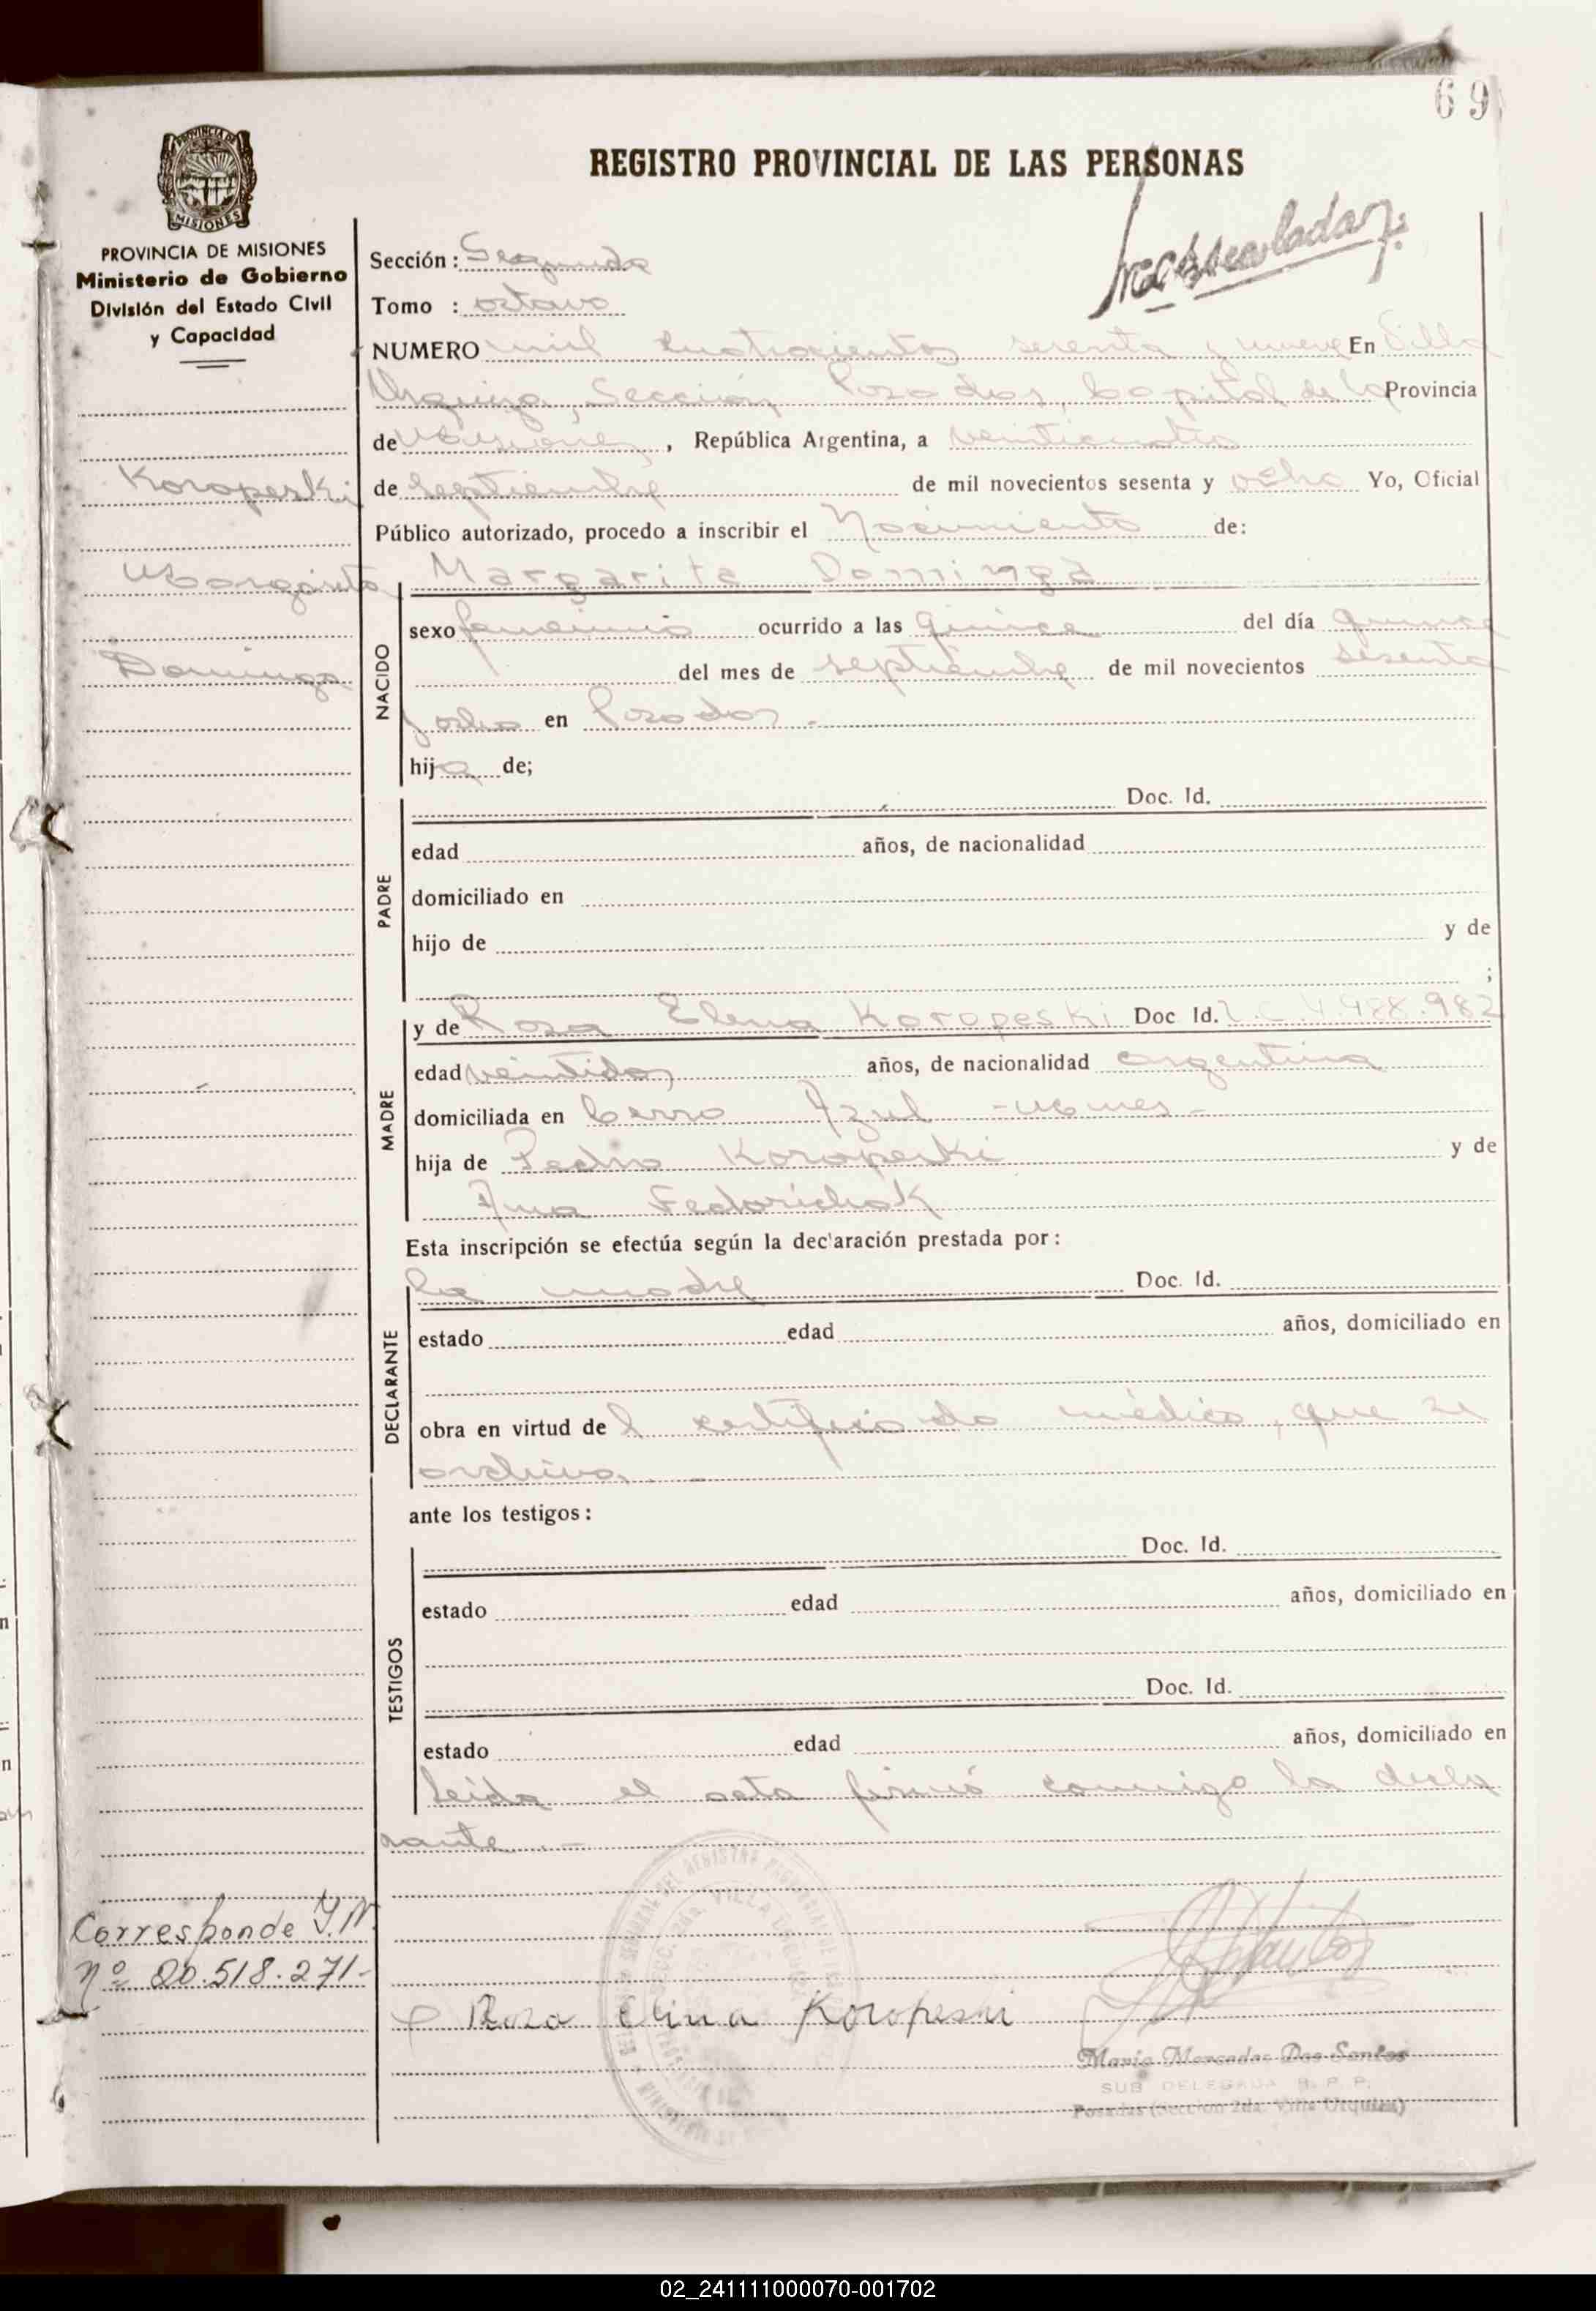 69
REGISTRO PROVINCIAL DE LAS PERSONAS
PROVINCIA DE
MISIONES
PROVINCIA DE MISIONES
Ministerio de Gobierno
División del Estado Civil
y Capacidad
Koropeski
Margarita
Dominga
Sección: Segunda
Tomo : octavo
NUMERO mil cuatrocientos sesenta y nueve En Villa
Urquiza, Sección Posadas, Capital de la Provincia
de Misiones, República Argentina, a veinticuatro
de septiembre de mil novecientos sesenta y ocho Yo, Oficial
Público autorizado, procedo a inscribir el Nacimiento de:
NACIDO
Margarita Dominga
sexo femenino ocurrido a las quince del día quince
del mes de septiembre de mil novecientos sesenta
y ocho en Posadas.
hija de;
PADRE
Doc. Id.
edad años, de nacionalidad
domiciliado en
hijo de y de
;
MADRE
y de Rosa Elena Koropeski Doc Id. L.C. 4.988.982
edad veintidos años, de nacionalidad argentina
domiciliada en Cerro Azul - Mnes -
hija de Pedro Koropeski y de
Ana Fedorichak
Esta inscripción se efectúa según la declaración prestada por:
DECLARANTE
la madre Doc. Id.
estado edad años, domiciliado en
obra en virtud de l certificado médico, que se
archiva. -
ante los testigos:
TESTIGOS
Doc. Id.
estado edad años, domiciliado en
Doc. Id.
estado edad años, domiciliado en
Leida el acta firmó conmigo la decla
rante. -
Corresponde I.N.
Nº 20.518.271-
Rosa Elena Koropeski
Maria Mercedes Dos Santos
SUB DELEGADA R. P. P.
Posadas (Seccion 2da. Villa Urquiza)
02_241111000070-001702